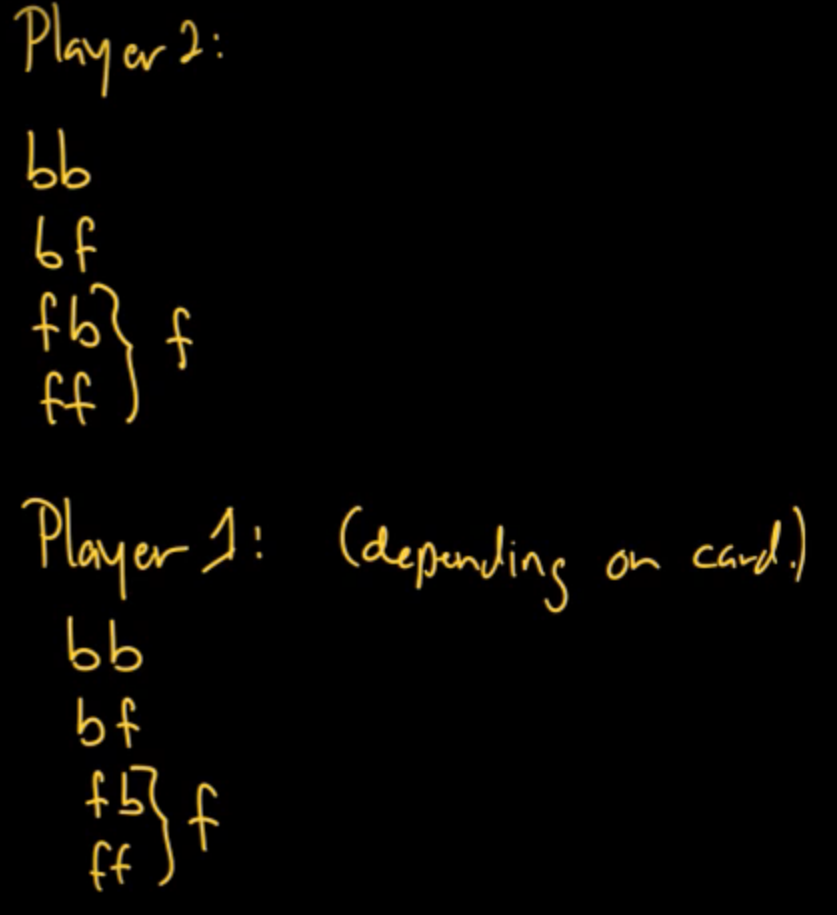 Player 2:
bb
bf
fb } f
ff
Player 1: (depending on card.)
bb
bf
fb } f
ff